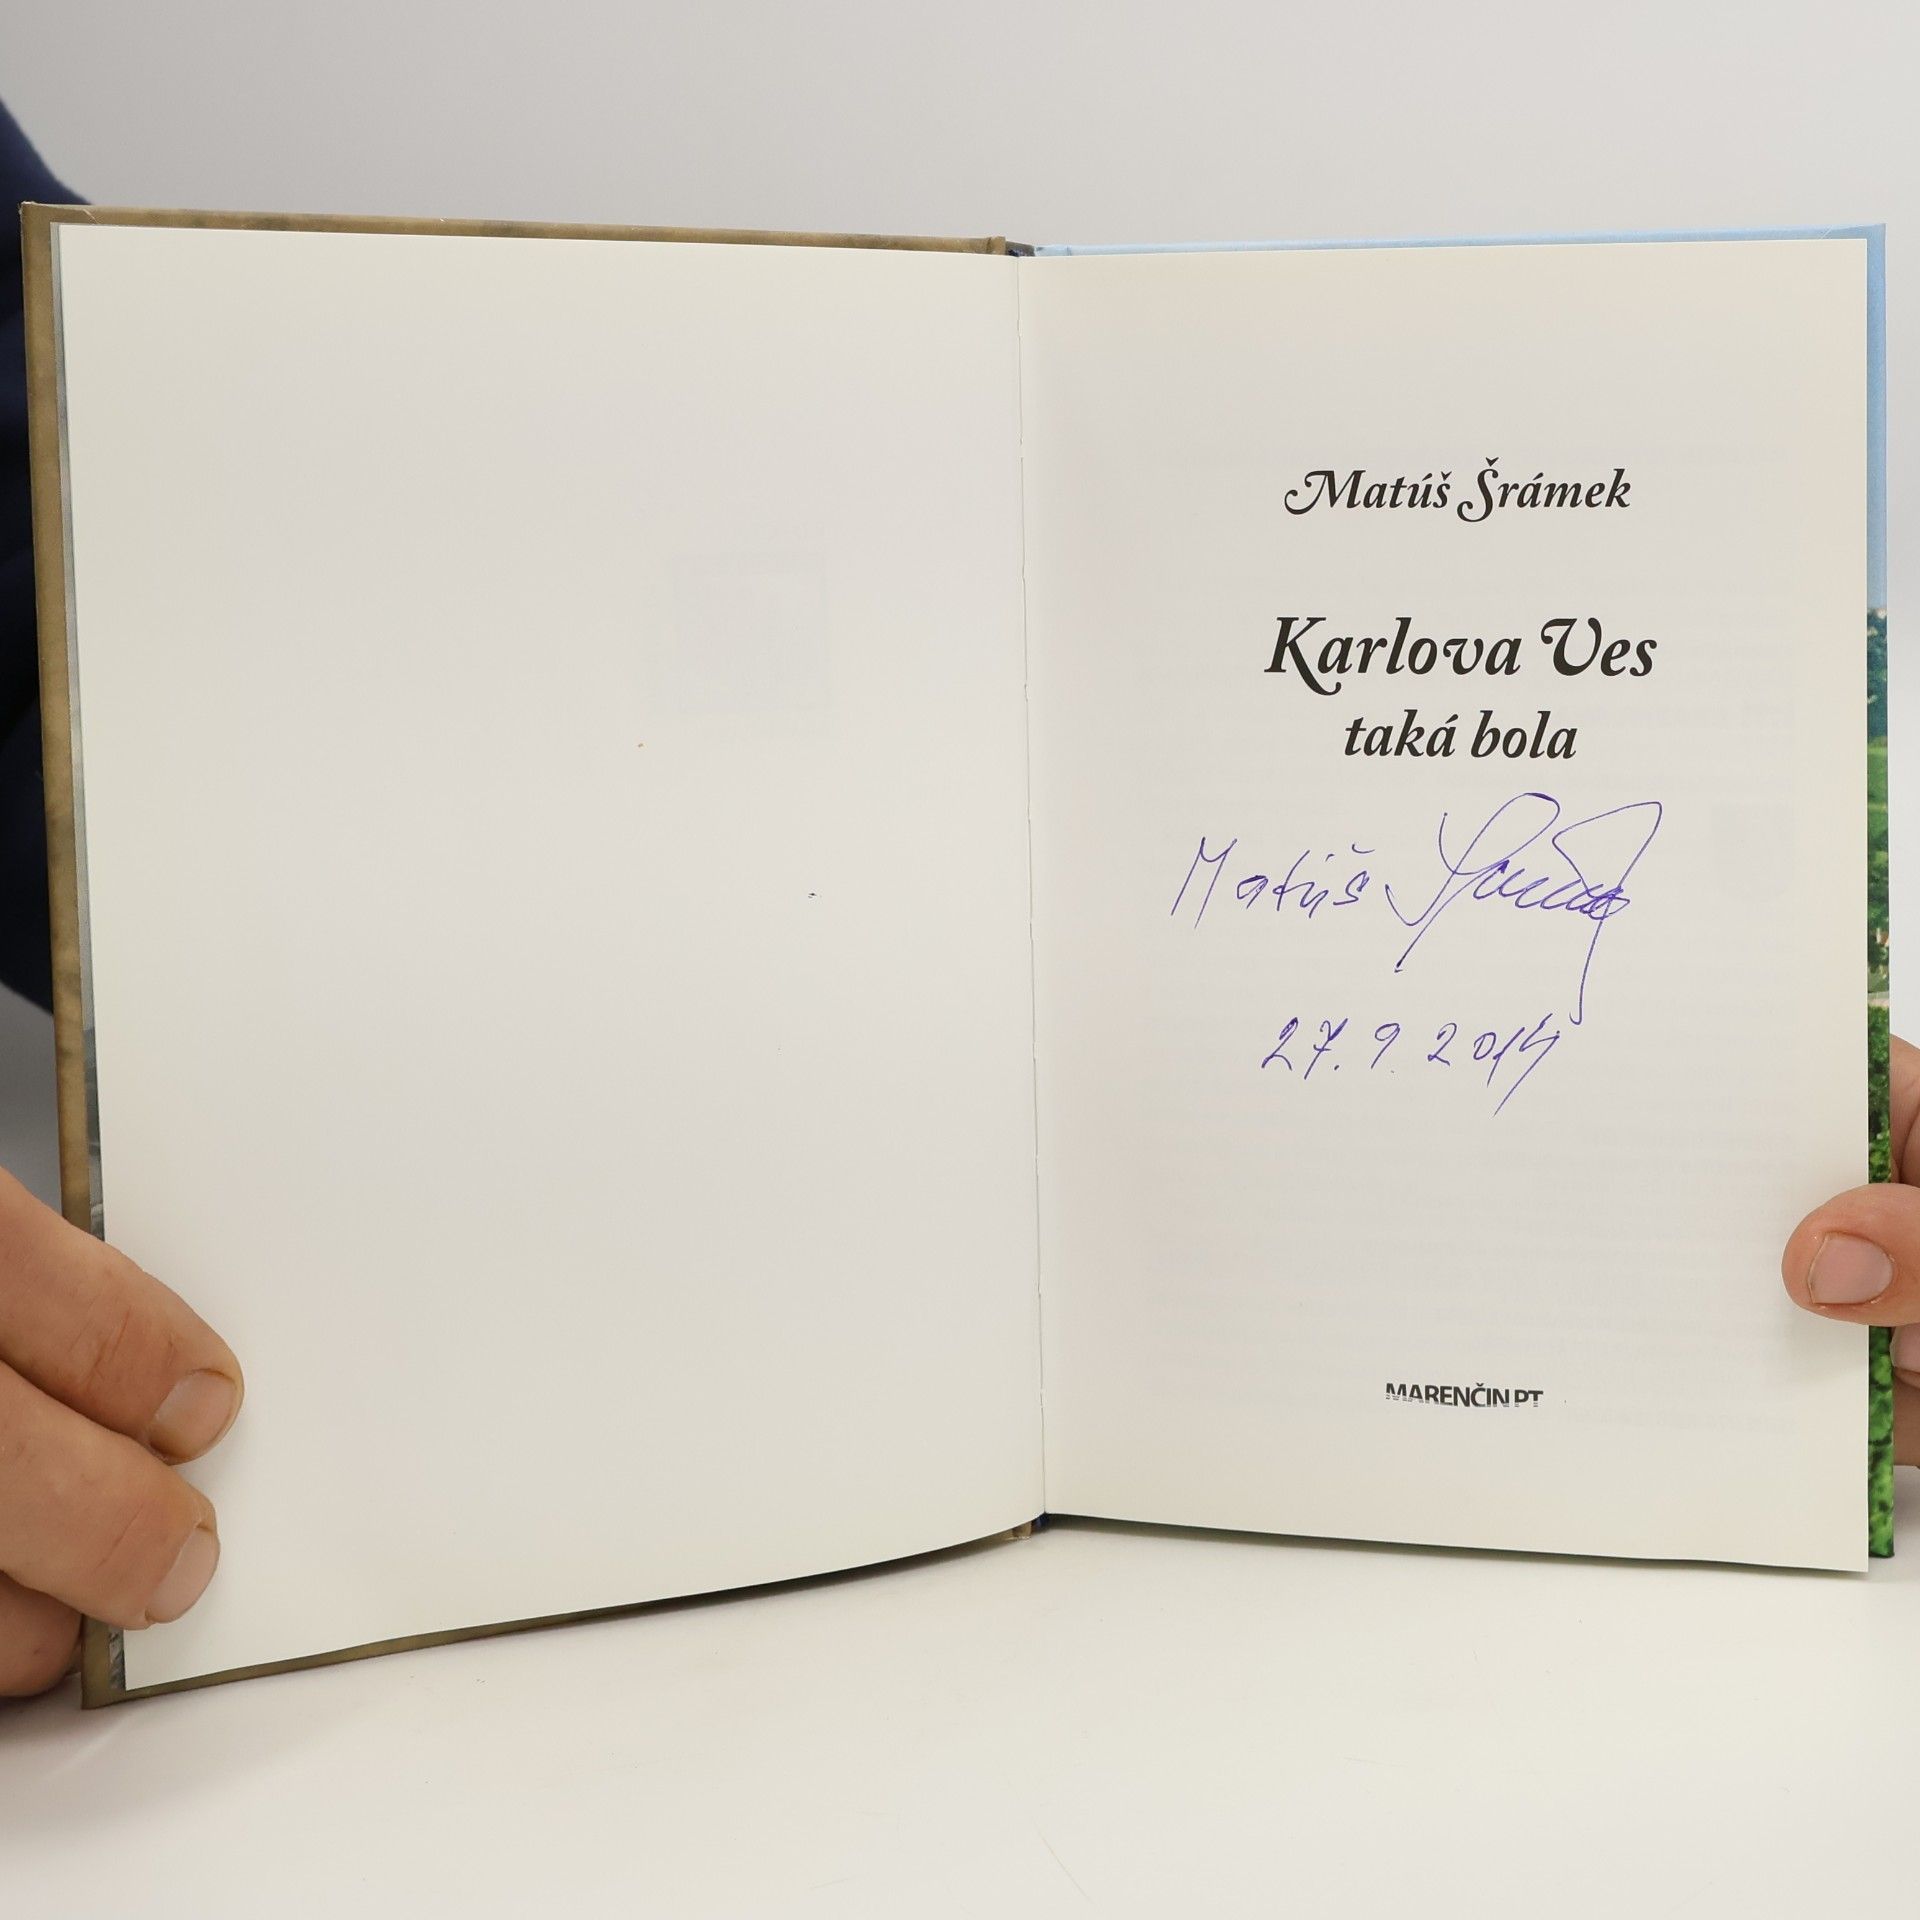 Matúš Šrámek
Karlova Ves
taká bola
Matúš Šrámek
27. 9. 2014
MARENČIN PT